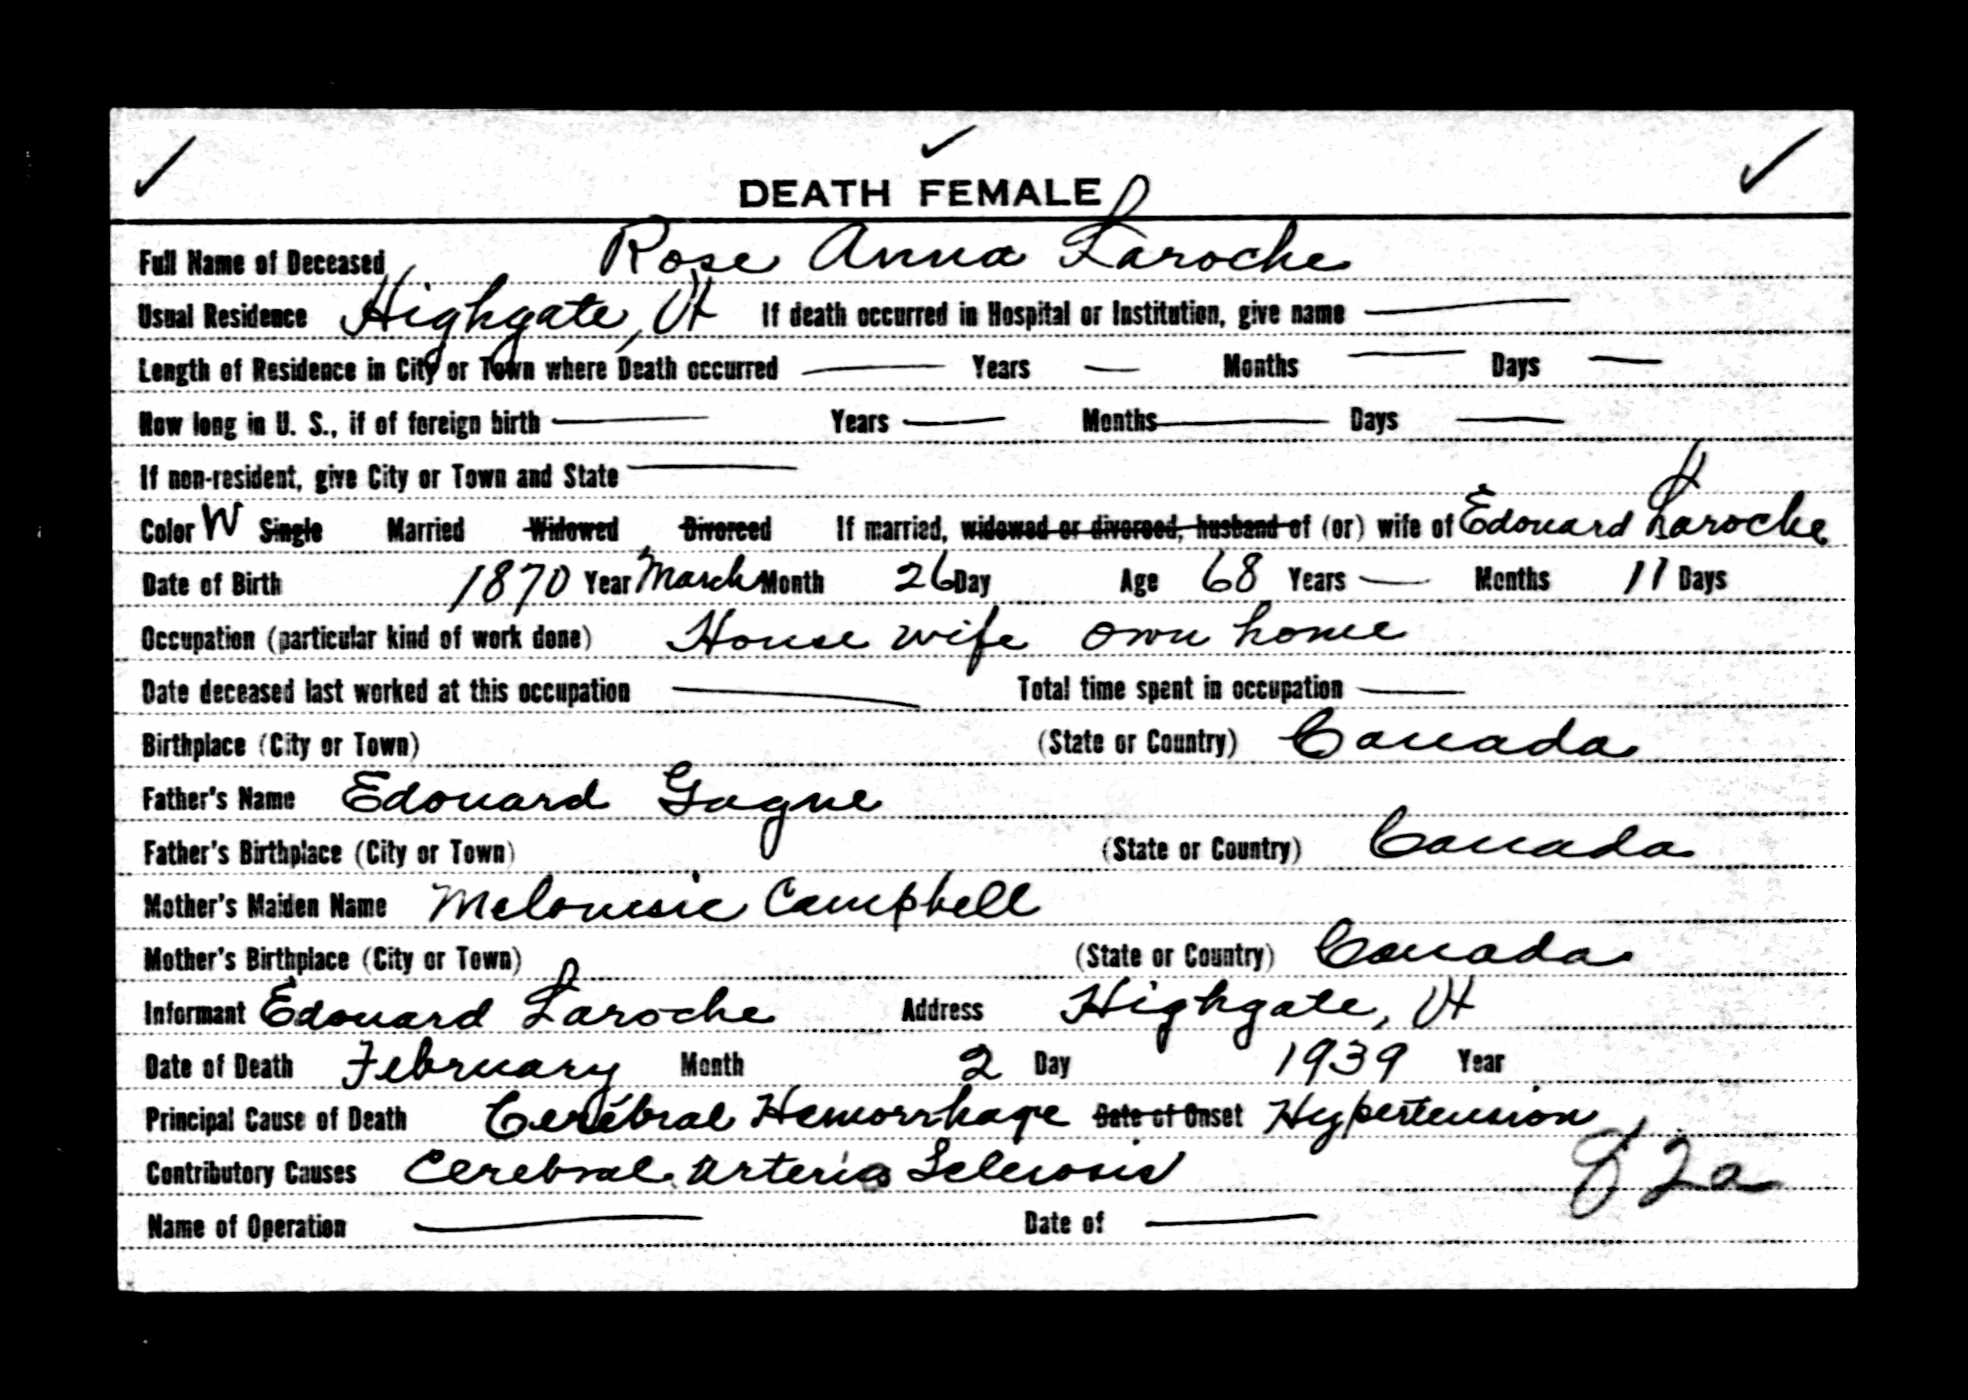 DEATH FEMALE
Full Name of Deceased Rose Anna Laroche
Usual Residence Highgate, Vt If death occurred in Hospital or Institution, give name
Length of Residence in City or Town where Death occurred Years Months Days
How long in U. S., if of foreign birth Years Months Days
If non-resident, give City or Town and State
Color W Single Married Widowed Divorced If married, widowed or divorced, husband of (or) wife of Edouard Laroche
Date of Birth 1870 Year March Month 26 Day Age 68 Years Months 11 Days
Occupation (particular kind of work done) House wife own home
Date deceased last worked at this occupation Total time spent in occupation
Birthplace (City or Town) (State or Country) Canada
Father's Name Edouard Gagne
Father's Birthplace (City or Town) (State or Country) Canada
Mother's Maiden Name Campbell
Mother's Birthplace (City or Town) (State or Country) Canada
Informant Edouard Laroche Address Highgate, Vt
Date of Death February Month 2 Day 1939 Year
Principal Cause of Death Cerebral Hemorrhage Date of Onset Hypertension
Contributory Causes Cerebral Arterio Sclerosis
Name of Operation Date of